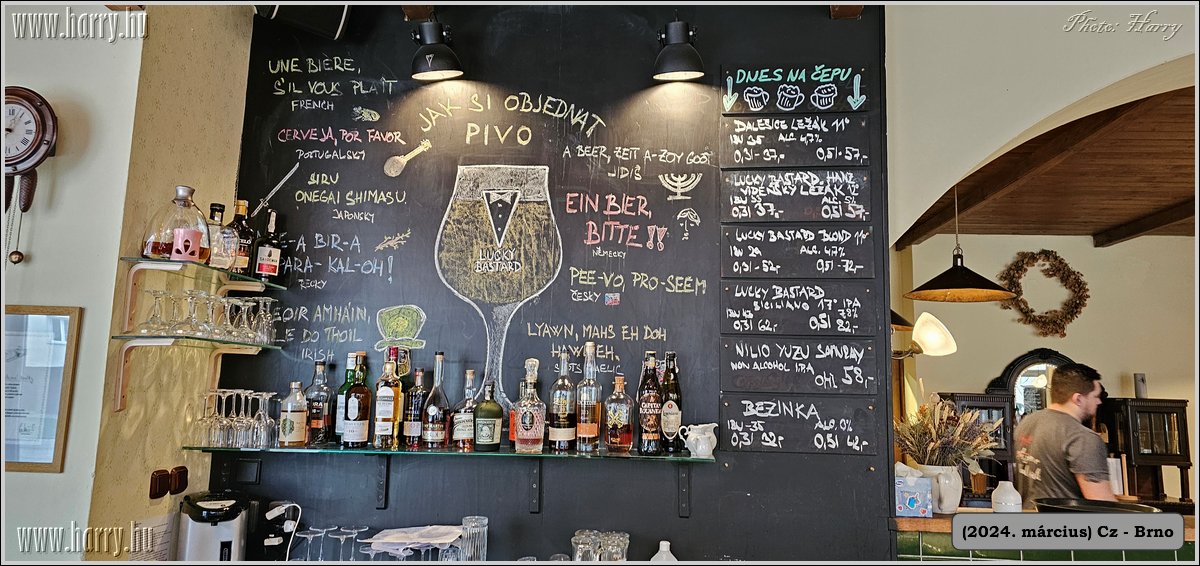 www.harry.hu
Photo: Harry
UNE BIÈRE,
S'IL VOUS PLAÎT
FRENCH
CERVEJA, POR FAVOR
PORTUGALSKY
BIRU
ONEGAI SHIMASU
JAPONSKY
E-A BIR-A
PARA-KAL-OH!
ŘECKY
LE DO THOIL
IRISH
JAK SI OBJEDNAT
PIVO
LUCKY
BASTARD
A BEER, ZEIT A-ZOY GOOT
JIDIŠ
EIN BIER,
BITTE!!
NĚMECKY
PEE-VO, PRO-SEEM
ČESKY
LYAWN, MAHS EH DOH
DNES NA ČEPU
DALEŠICE LEŽÁK 11°
IBU 35 ALC. 4,7%
0,3l 37,- 0,5l 57,-
LUCKY BASTARD
VÍDEŇSKÝ LEŽÁK
0,3l 37,- 0,5l 57,-
LUCKY BASTARD BLOND 11°
IBU 29 ALC. 4,7%
0,3l 52,- 0,5l 72,-
LUCKY BASTARD
SICILIANO 17° IPA
7,8%
0,3l 62,- 0,5l 82,-
NILIO YUZU SAMURAY
NON ALCOHOL IPA
58,-
BEZINKA
IBU-35 ALC. 0%
0,3l 32,- 0,5l 42,-
www.harry.hu
(2024. március) Cz - Brno